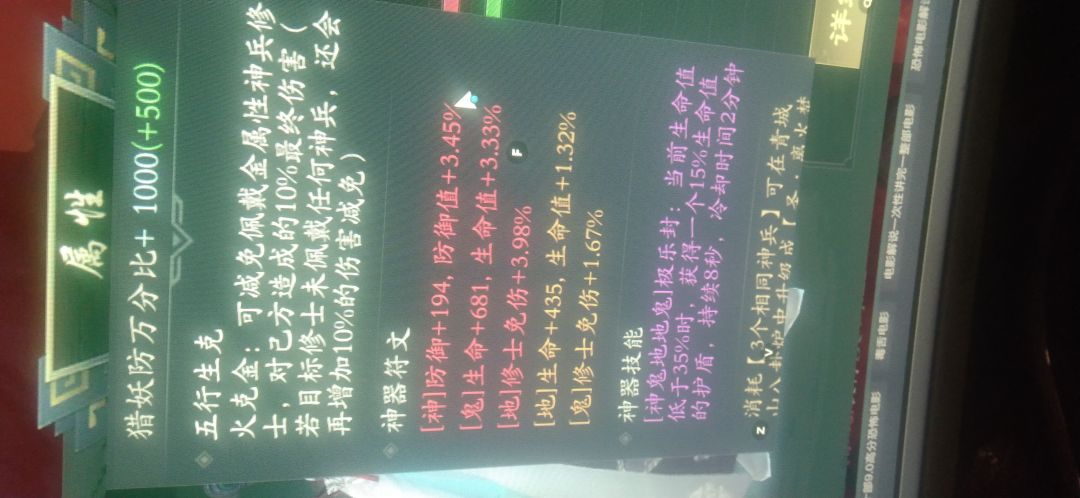 属性
猎妖防万分比+ 1000(+500)
五行生克
火克金：可减免佩戴金属性神兵修
士，对己方造成的10%最终伤害（
若目标修士未佩戴任何神兵，还会
再增加10%的伤害减免）
神器符文
[神]防御+194, 防御值+3.45%
[鬼]生命+681, 生命值+3.33%
[地]修士免伤+3.98%
[地]生命+435, 生命值+1.32%
[鬼]修士免伤+1.67%
神器技能
[神鬼地地鬼]极乐封：当前生命值
低于35%时，获得一个15%生命值
的护盾，持续8秒，冷却时间2分钟
消耗【3个相同神兵】可在青城
山八卦炉中升级成【圣·
F
Z
V
恐怖电影解说
电影解说一次性讲完一整部电影
毒舌电影
部9.0高分恐怖电影